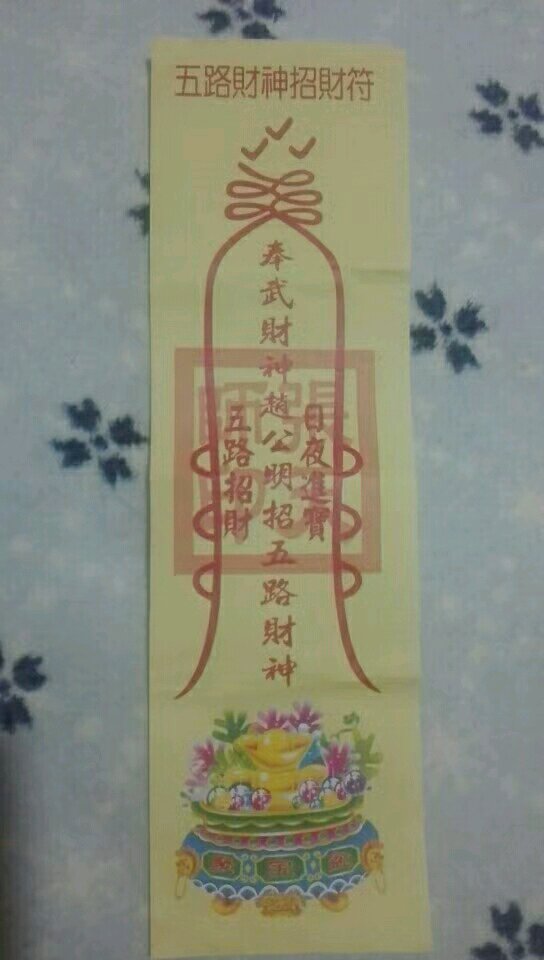 五路財神招財符
奉武財神趙公明招五路財神
日夜進寶
五路招財